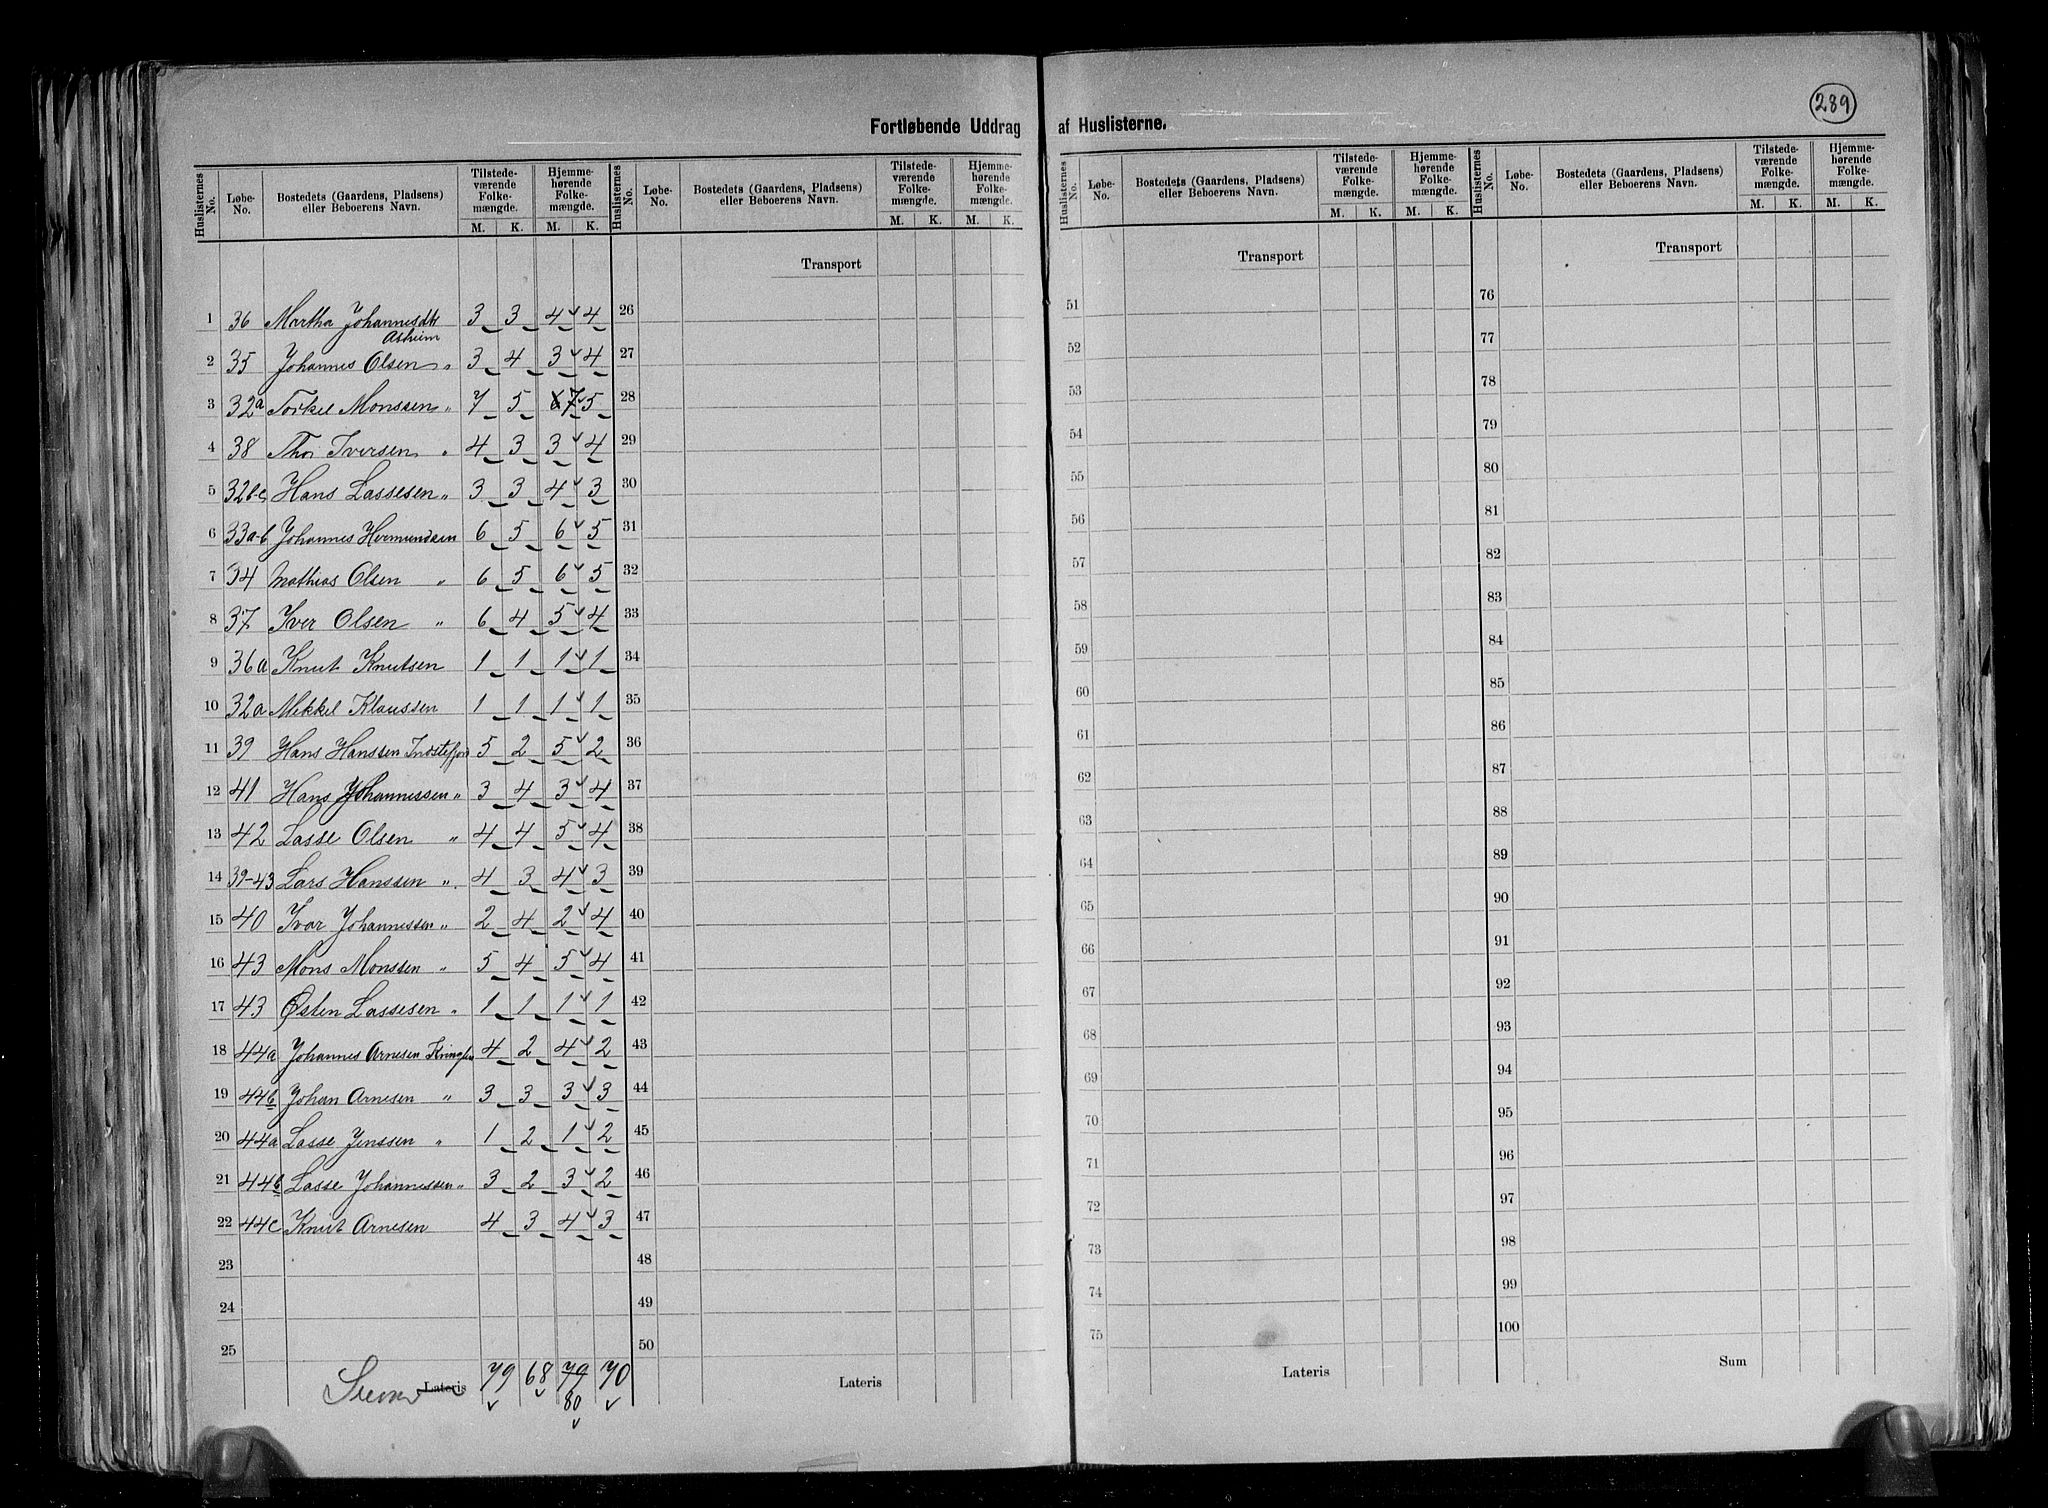 289
Fortløbende Uddrag af Huslisterne.
Huslisternes No. Løbe-No. Bostedets (Gaardens, Pladsens) eller Beboerens Navn. Tilstedeværende Folkemængde. M. K. Hjemmehørende Folkemængde. M. K.
Huslisternes No. Løbe-No. Bostedets (Gaardens, Pladsens) eller Beboerens Navn. Tilstedeværende Folkemængde. M. K. Hjemmehørende Folkemængde. M. K.
Huslisternes No. Løbe-No. Bostedets (Gaardens, Pladsens) eller Beboerens Navn. Tilstedeværende Folkemængde. M. K. Hjemmehørende Folkemængde. M. K.
Huslisternes No. Løbe-No. Bostedets (Gaardens, Pladsens) eller Beboerens Navn. Tilstedeværende Folkemængde. M. K. Hjemmehørende Folkemængde. M. K.
1 36 Martha Johannesdtr 3 3 4 4
Asheim
2 35 Johannes Olsen " 3 4 3 4
3 32a Torkel Monssen " 7 5 6 7 5
4 38 Iversen " 4 3 3 4
5 32b-c Hans Lassesen " 3 3 4 3
6 33a-b Johannes Hermundsen 6 5 6 5
7 34 Mathias Olsen " 6 5 6 5
8 37 Iver Olsen " 6 4 5 4
9 36a Knut Knutsen 1 1 1 1
10 32a Mekkel Klaussen 1 1 1 1
11 39 Hans Hanssen Indstefjor 5 2 5 2
12 41 Hans Johannessen " 3 4 3 4
13 42 Lasse Olsen " 4 4 5 4
14 39-43 Lars Hanssen " 4 3 4 3
15 40 Ivar Johannessen " 2 4 2 4
16 43 Mons Monssen " 5 4 5 4
17 43 Østen Lassesen " 1 1 1 1
18 44a Johannes Arnesen 4 2 4 2
19 44b Johan Arnesen " 3 3 3 3
20 44a Lasse Jenssen " 1 2 1 2
21 44b Lasse Johannessen " 3 2 3 2
22 44c Knut Arnesen 4 3 4 3
23
24
25
Summa Lateris 79 68 79 70
80
Transport
26
27
28
29
30
31
32
33
34
35
36
37
38
39
40
41
42
43
44
45
46
47
48
49
50
Lateris
Transport
51
52
53
54
55
56
57
58
59
60
61
62
63
64
65
66
67
68
69
70
71
72
73
74
75
Lateris
Transport
76
77
78
79
80
81
82
83
84
85
86
87
88
89
90
91
92
93
94
95
96
97
98
99
100
Sum